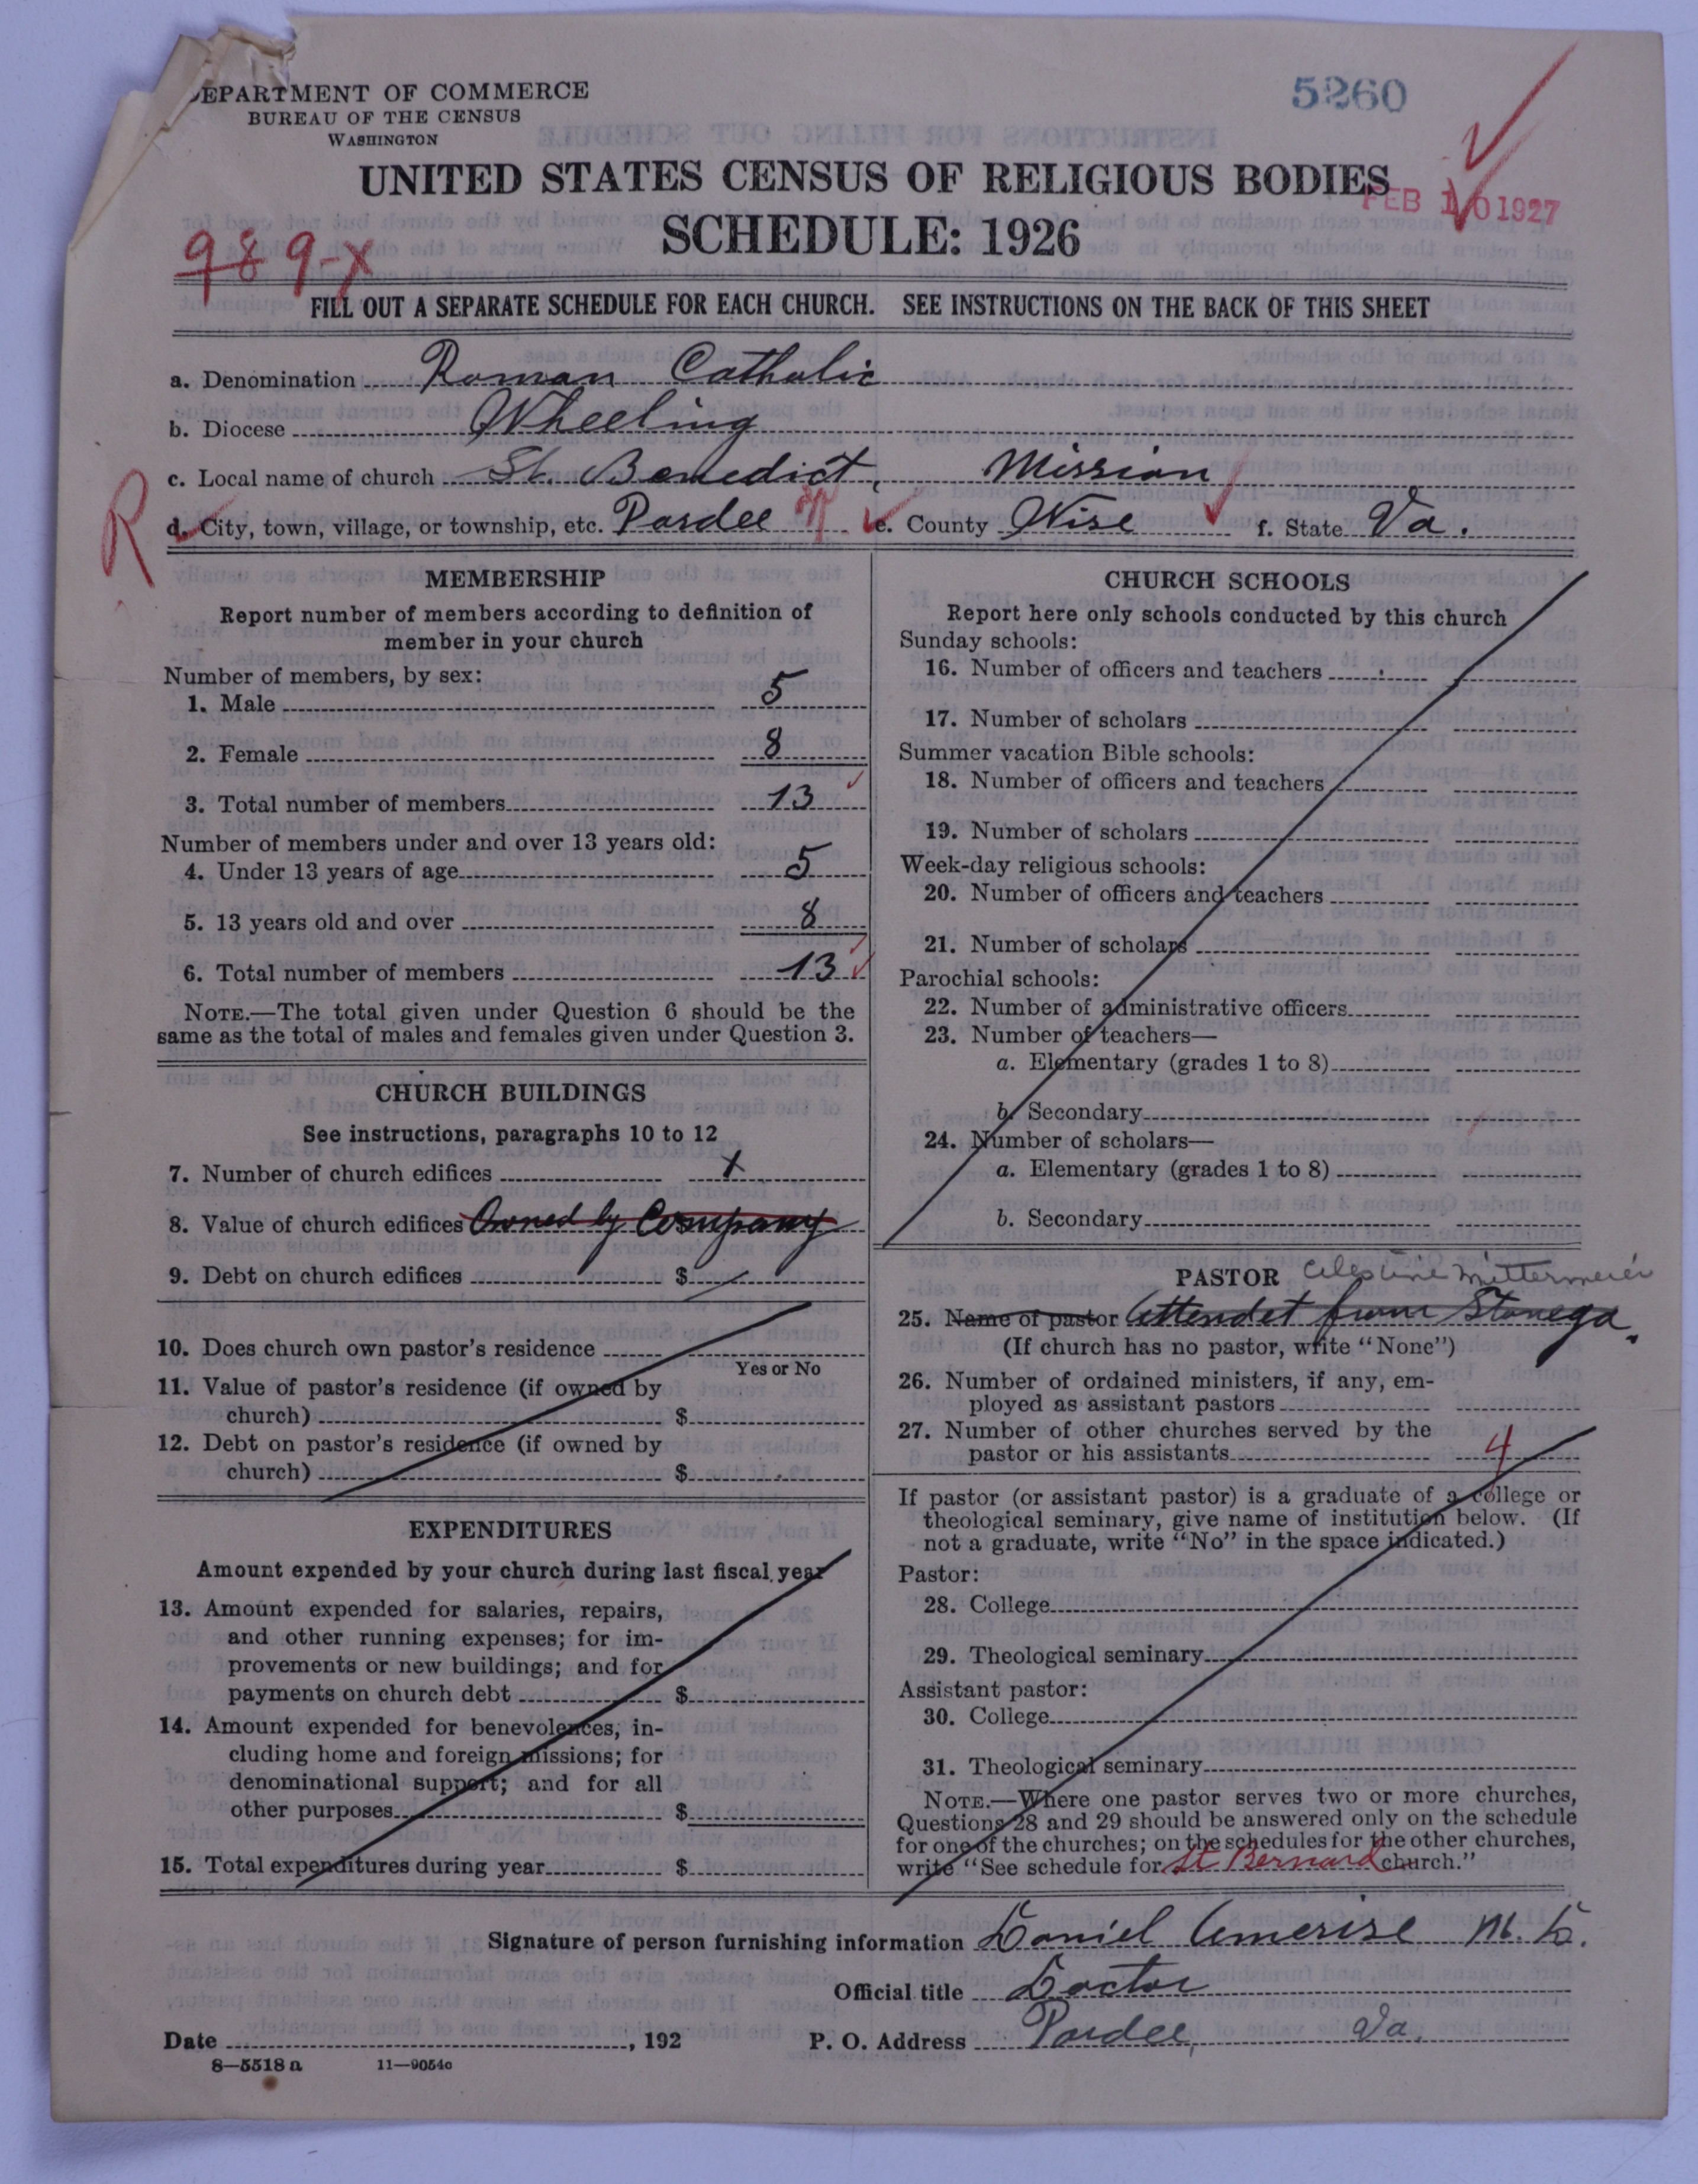 DEPARTMENT OF COMMERCE
BUREAU OF THE CENSUS
WASHINGTON
5260
UNITED STATES CENSUS OF RELIGIOUS BODIES
SCHEDULE: 1926
FEB 10 1927
989-X
FILL OUT A SEPARATE SCHEDULE FOR EACH CHURCH. SEE INSTRUCTIONS ON THE BACK OF THIS SHEET
a. Denomination Roman Catholic
b. Diocese Wheeling
c. Local name of church St. Benedict, Mission
R
d. City, town, village, or township, etc. Pardee e. County Wise f. State Va.
MEMBERSHIP
Report number of members according to definition of
member in your church
Number of members, by sex:
1. Male 5
2. Female 8
3. Total number of members 13
Number of members under and over 13 years old:
4. Under 13 years of age 5
5. 13 years old and over 8
6. Total number of members 13
NOTE.—The total given under Question 6 should be the
same as the total of males and females given under Question 3.
CHURCH BUILDINGS
See instructions, paragraphs 10 to 12
7. Number of church edifices
8. Value of church edifices Owned by Company
9. Debt on church edifices $
10. Does church own pastor's residence
Yes or No
11. Value of pastor's residence (if owned by
church) $
12. Debt on pastor's residence (if owned by
church) $
EXPENDITURES
Amount expended by your church during last fiscal year
13. Amount expended for salaries, repairs,
and other running expenses; for im-
provements or new buildings; and for
payments on church debt $
14. Amount expended for benevolences, in-
cluding home and foreign missions; for
denominational support; and for all
other purposes $
15. Total expenditures during year $
CHURCH SCHOOLS
Report here only schools conducted by this church
Sunday schools:
16. Number of officers and teachers
17. Number of scholars
Summer vacation Bible schools:
18. Number of officers and teachers
19. Number of scholars
Week-day religious schools:
20. Number of officers and teachers
21. Number of scholars
Parochial schools:
22. Number of administrative officers
23. Number of teachers—
a. Elementary (grades 1 to 8)
b. Secondary
24. Number of scholars—
a. Elementary (grades 1 to 8)
b. Secondary
PASTOR Celestine Mittermeier
25. Name of pastor Attendet from Stonega.
(If church has no pastor, write "None")
26. Number of ordained ministers, if any, em-
ployed as assistant pastors
27. Number of other churches served by the
pastor or his assistants 4
If pastor (or assistant pastor) is a graduate of a college or
theological seminary, give name of institution below. (If
not a graduate, write "No" in the space indicated.)
Pastor:
28. College
29. Theological seminary
Assistant pastor:
30. College
31. Theological seminary
NOTE.—Where one pastor serves two or more churches,
Questions 28 and 29 should be answered only on the schedule
for one of the churches; on the schedules for the other churches,
write "See schedule for St Bernard church."
Signature of person furnishing information Daniel Amerise M. D.
Official title Doctor
Date , 192
P. O. Address Pardee, Va.
8—5518 a 11—9054c